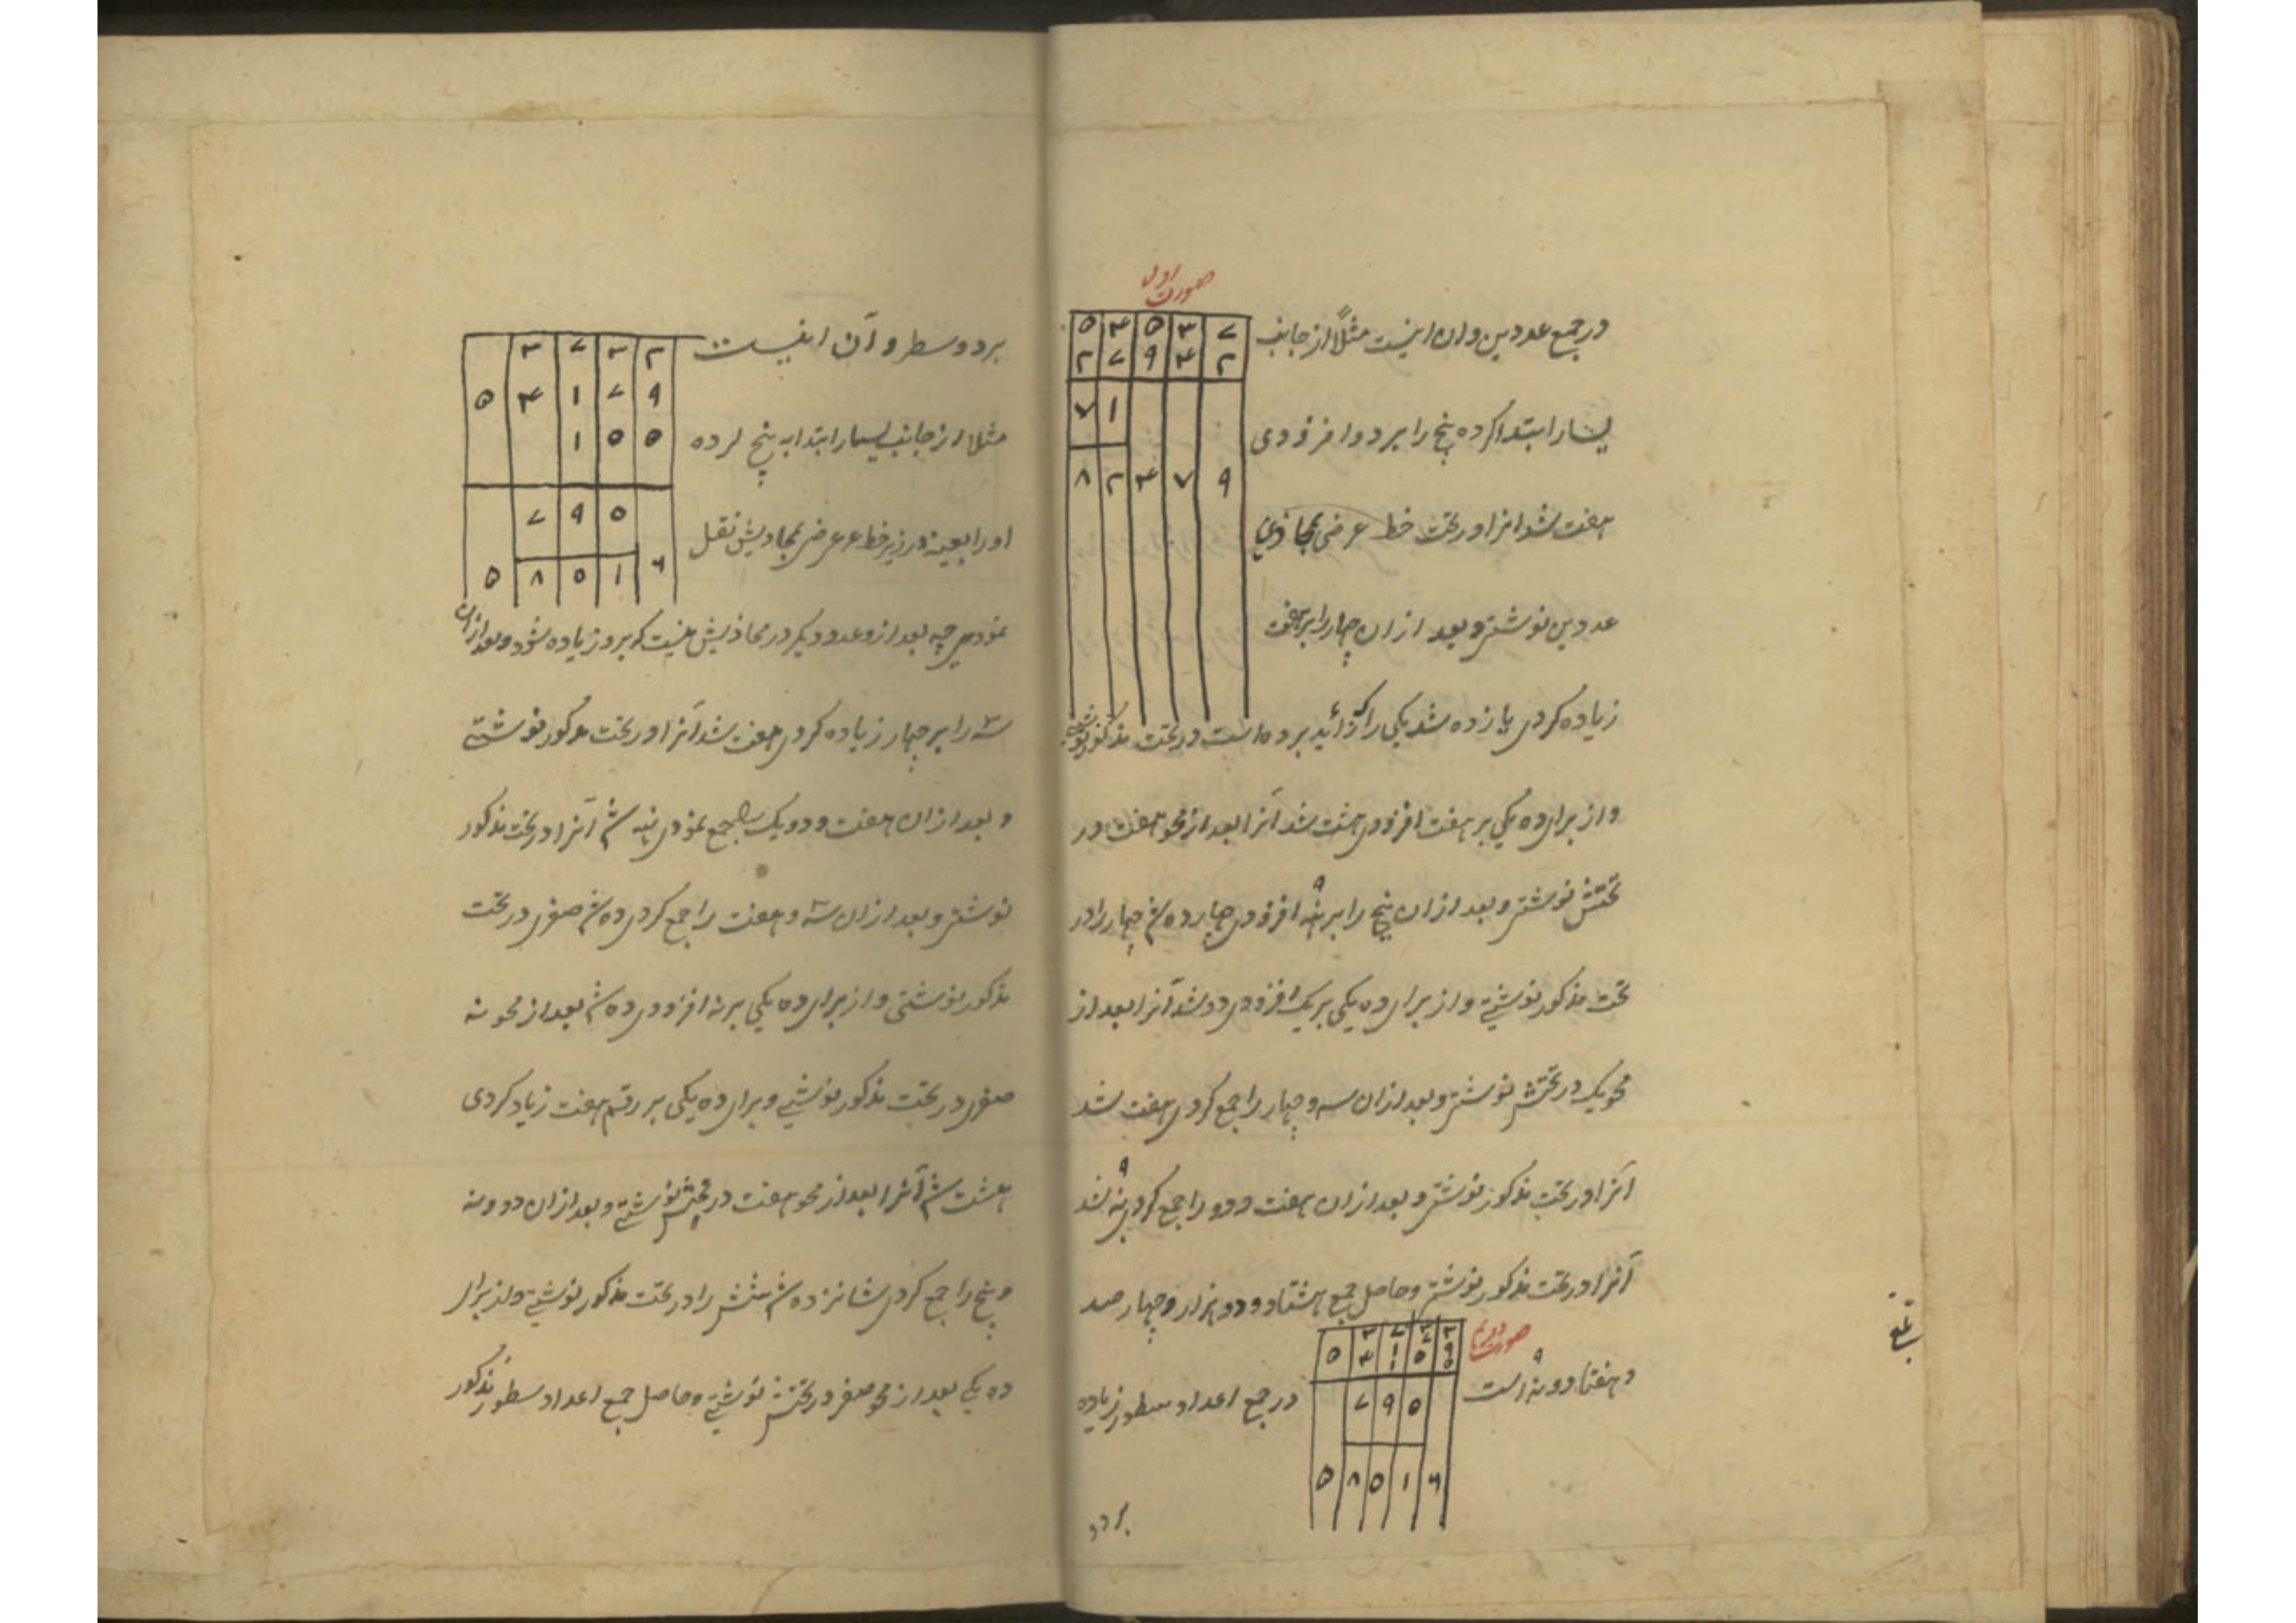 صورت اول
۵ ۴ ۵ ۳ ۷
۲ ۷ ۹ ۴ ۲
۷ ۱
۸ ۲ ۴ ۷ ۹
در جمع عددین و ان اینست مثلاً از جانب
یسار ابتدا کرده پنج را بر دو افزودی
هفت شد انرا در تحت خط عرضی محاذی
عددین نوشتی و بعد ازان چهار را بر هفت
زیاده کردی یازده شد یکی را که زائد بر ده است در تحت مذکور نوشتی
و از برای ده یکی بر هفت افزودی هشت شد آنرا بعد از محو هفت در
تحتش نوشتی و بعد ازان پنج را بر نه ۹ افزودی چهارده شد چهار را در
تحت مذکور نوشتی و از برای ده یکی بر یک افزودی دو شد آنرا بعد از
محو یک در تحتش نوشتی و بعد ازان سه و چهار را جمع کردی هفت شد
آنرا در تحت مذکور نوشتی و بعد ازان هفت و دو را جمع کردی نه ۹ شد
آنرا در تحت مذکور نوشتی و حاصل جمع هشتاد و دو هزار و چهار صد
و هفتاد و نه ۹ است
صورت دویم
در جمع اعداد سطور زیاده
۷ ۹ ۰
۵ ۸ ۰ ۱ ۶
بر دو
بر دو سطر و آن اینست
۳ ۷ ۳ ۲
۵ ۴ ۱ ۷ ۹
۱ ۰ ۵
۷ ۹ ۰
۵ ۸ ۰ ۱ ۶
مثلا از جانب یسار ابتدا به پنج کرده
او را بعینه در زیر خط عرضی بمحاذیش نقل
نمودی چه بعد ازو عدد دیگر در محاذیش نیست که برو زیاده شود و بعد ازان
سه را بر چهار زیاده کردی هفت شد آنرا در تحت مذکور نوشتی
و بعد ازان هفت و دو یک را جمع نمودی نه شد آنرا در تحت مذکور
نوشتی و بعد ازان سه و هفت را جمع کردی ده شد صفر در تحت
مذکور نوشتی و از برای ده یکی بر نه افزودی ده شد بعد از محو نه
صفر در تحت مذکور نوشتی و برای ده یکی بر رقم هفت زیاد کردی
هشت شد آنرا بعد از محو هفت در تحتش نوشتی و بعد ازان دو و نه
و پنج را جمع کردی شانزده شد شش را در تحت مذکور نوشتی و از برای
ده یکی بعد از محو صفر در تحتش نوشتی و حاصل جمع اعداد سطور مذکور